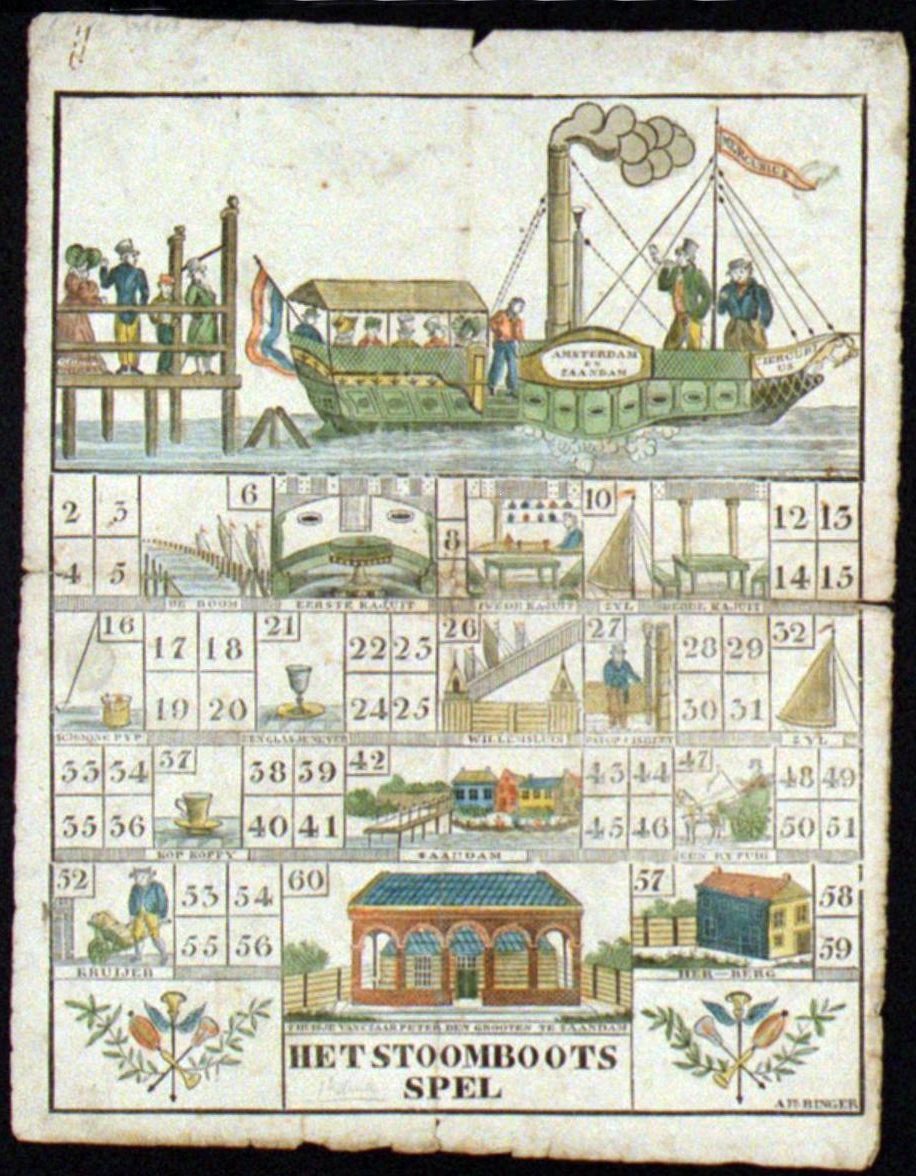 MERCURIUS
AMSTERDAM
EN
ZAANDAM
MERCURI
US
2 3 6 8 10 12 13
4 5 14 15
DE BOOM EERSTE KAJUIT TWEDE KAJUIT ZYL DERDE KAJUIT
16 17 18 21 22 23 26 27 28 29 32
19 20 24 25 30 31
EEN GLAS JENEVER WILLEMSLUIS ZYL
33 34 37 38 39 42 43 44 47 48 49
35 36 40 41 45 46 50 51
KOP KOFFY ZAANDAM EEN RYTUIG
52 53 54 60 57 58
55 56 59
KRUIJER HER-BERG
T HUISJE VAN CZAAR PETER DEN GROOTEN TE ZAANDAM
HET STOOMBOOTS
SPEL
RINGER